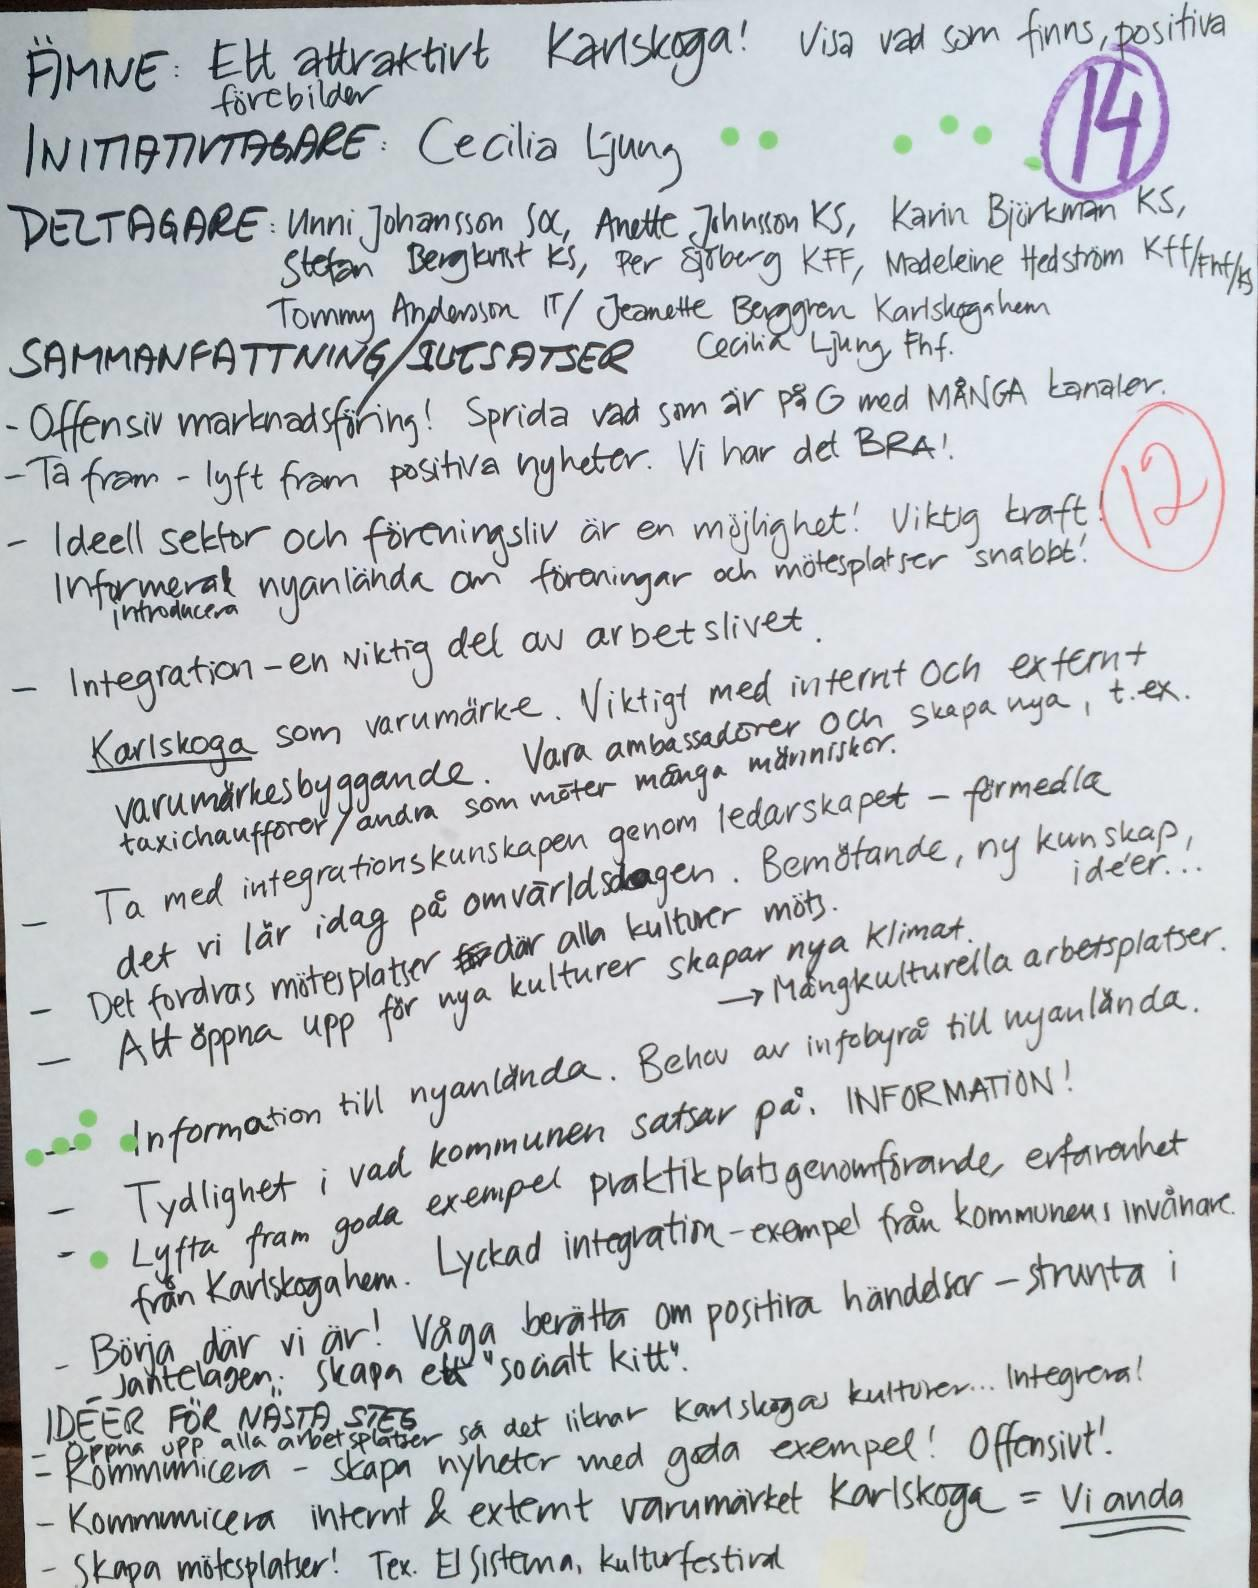 ÄMNE: Ett attraktivt Karlskoga! Visa vad som finns, positiva
förebilder
14
INITIATIVTAGARE: Cecilia Ljung
DELTAGARE: Unni Johansson Soc, Anette Johnsson KS, Karin Björkman KS,
Stefan Bergkvist KS, Per Sjöberg KFF, Madeleine Hedström Kff/Fhf/KS
Tommy Andersson IT/ Jeanette Berggren Karlskogahem
Cecilia Ljung, Fhf.
SAMMANFATTNING/SLUTSATSER
- Offensiv marknadsföring! Sprida vad som är på G med MÅNGA kanaler.
- Ta fram - lyft fram positiva nyheter. Vi har det BRA!
12
- Ideell sektor och föreningsliv är en möjlighet! Viktig kraft!
Informera nyanlända om föreningar och mötesplatser snabbt!
introducera
- Integration - en viktig del av arbetslivet.
Karlskoga som varumärke. Viktigt med internt och externt
varumärkesbyggande. Vara ambassadörer och skapa nya, t.ex.
taxichaufförer/andra som möter många människor.
- Ta med integrationskunskapen genom ledarskapet - förmedla
det vi lär idag på omvärldsdagen. Bemötande, ny kunskap,
idéer...
- Det fordras mötesplatser där alla kulturer möts.
- Att öppna upp för nya kulturer skapar nya klimat.
→ Mångkulturella arbetsplatser.
- Information till nyanlända. Behov av infobyrå till nyanlända.
- Tydlighet i vad kommunen satsar på. INFORMATION!
- Lyfta fram goda exempel praktikplatsgenomförande, erfarenhet
från Karlskogahem. Lyckad integration - exempel från kommunens invånare.
- Börja där vi är! Våga berätta om positiva händelser - strunta i
Jantelagen. Skapa ett "socialt kitt".
IDÉER FÖR NÄSTA STEG
- Öppna upp alla arbetsplatser så det liknar Karlskogas kulturer... Integrera!
- Kommunicera - skapa nyheter med goda exempel! Offensivt!
- Kommunicera internt & externt varumärket Karlskoga = Vi anda
- Skapa mötesplatser! Tex. El Sistema, kulturfestival